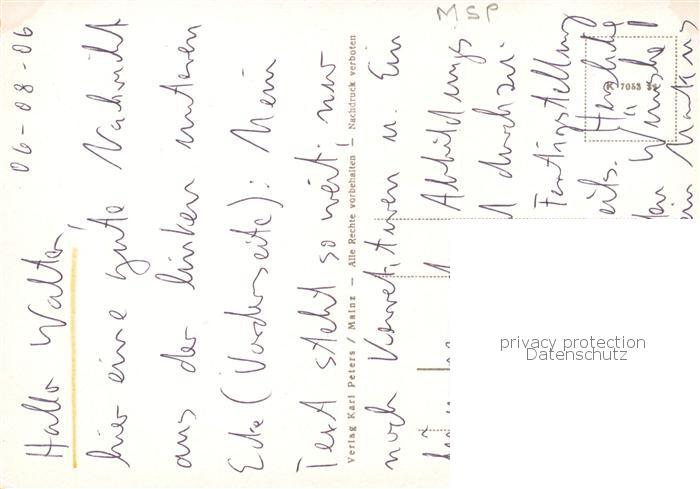 06-08-06
Hallo Walter,
hier eine gute Nachricht
aus der linken unteren
Ecke (Vorderseite): Mein
Text steht so weit; nur
Verlag Karl Peters / Mainz — Alle Rechte vorbehalten — Nachdruck verboten
noch Korrekturen u. Ein
MSP
Abbildungs
durchzu
Fertigstellung
Herzliche
Wünsche
Markus
K 7053
privacy protection
Datenschutz